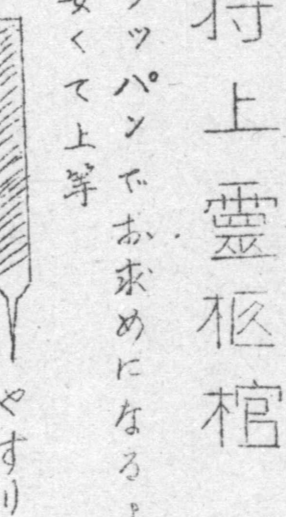 特上靈柩棺
ッパンでお求めになる。
くて上等
やすり